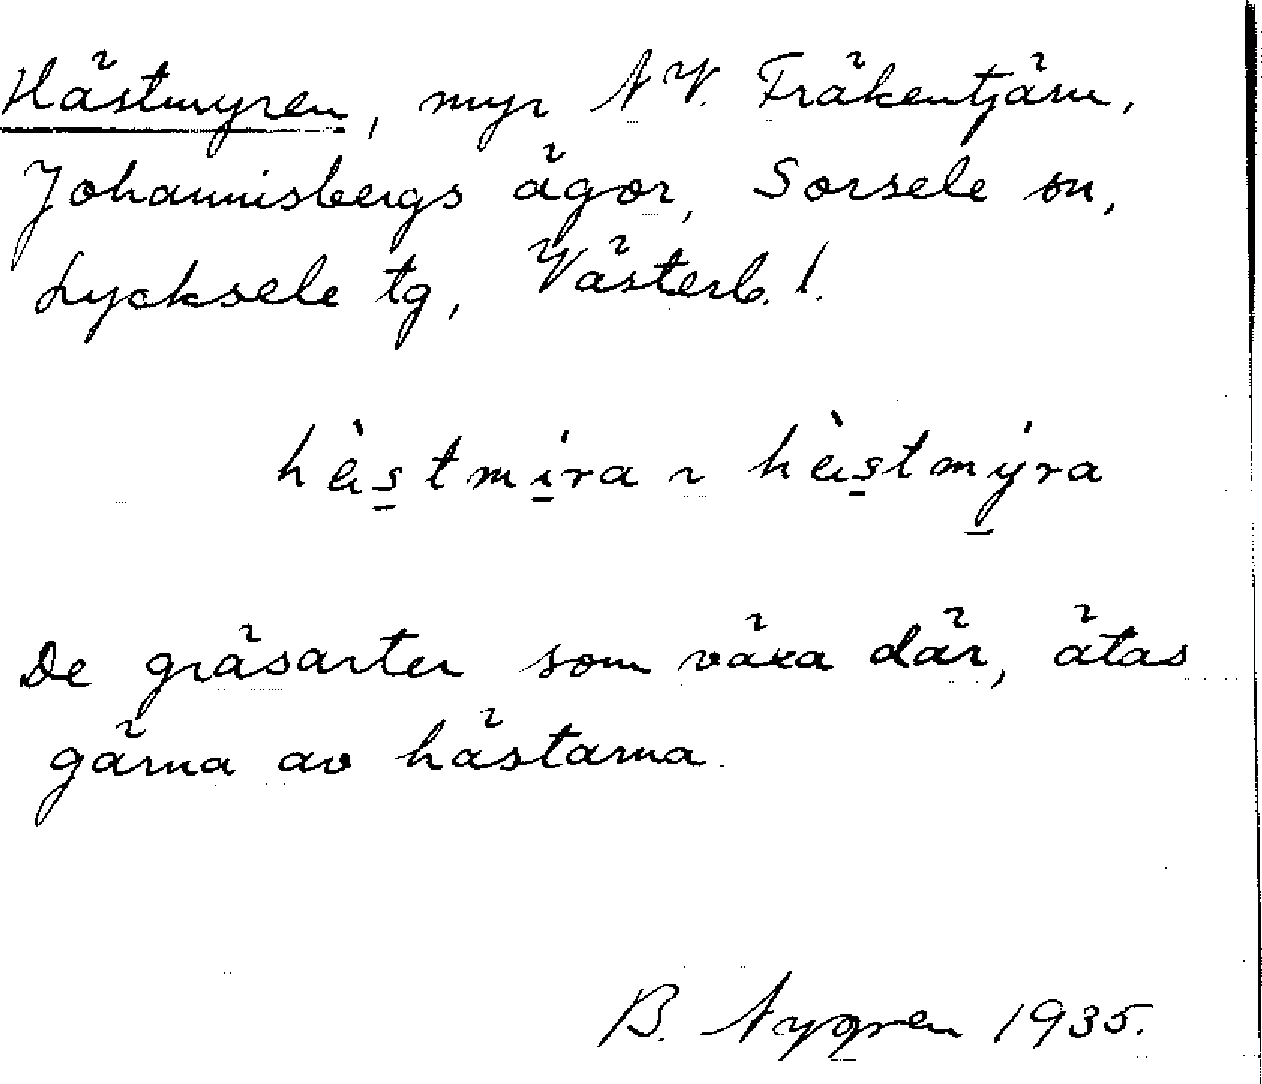 Hästmyren, myr NV. Fräkentjärn,
Johannisbergs ägor, Sorsele sn,
Lycksele tg, Västerb. l.
hä̀s̠tmi̠ra ~ hä̀s̠tmy̠ra
De gräsarter som växa där, ätas
gärna av hästarna.
B. Nygren 1935.